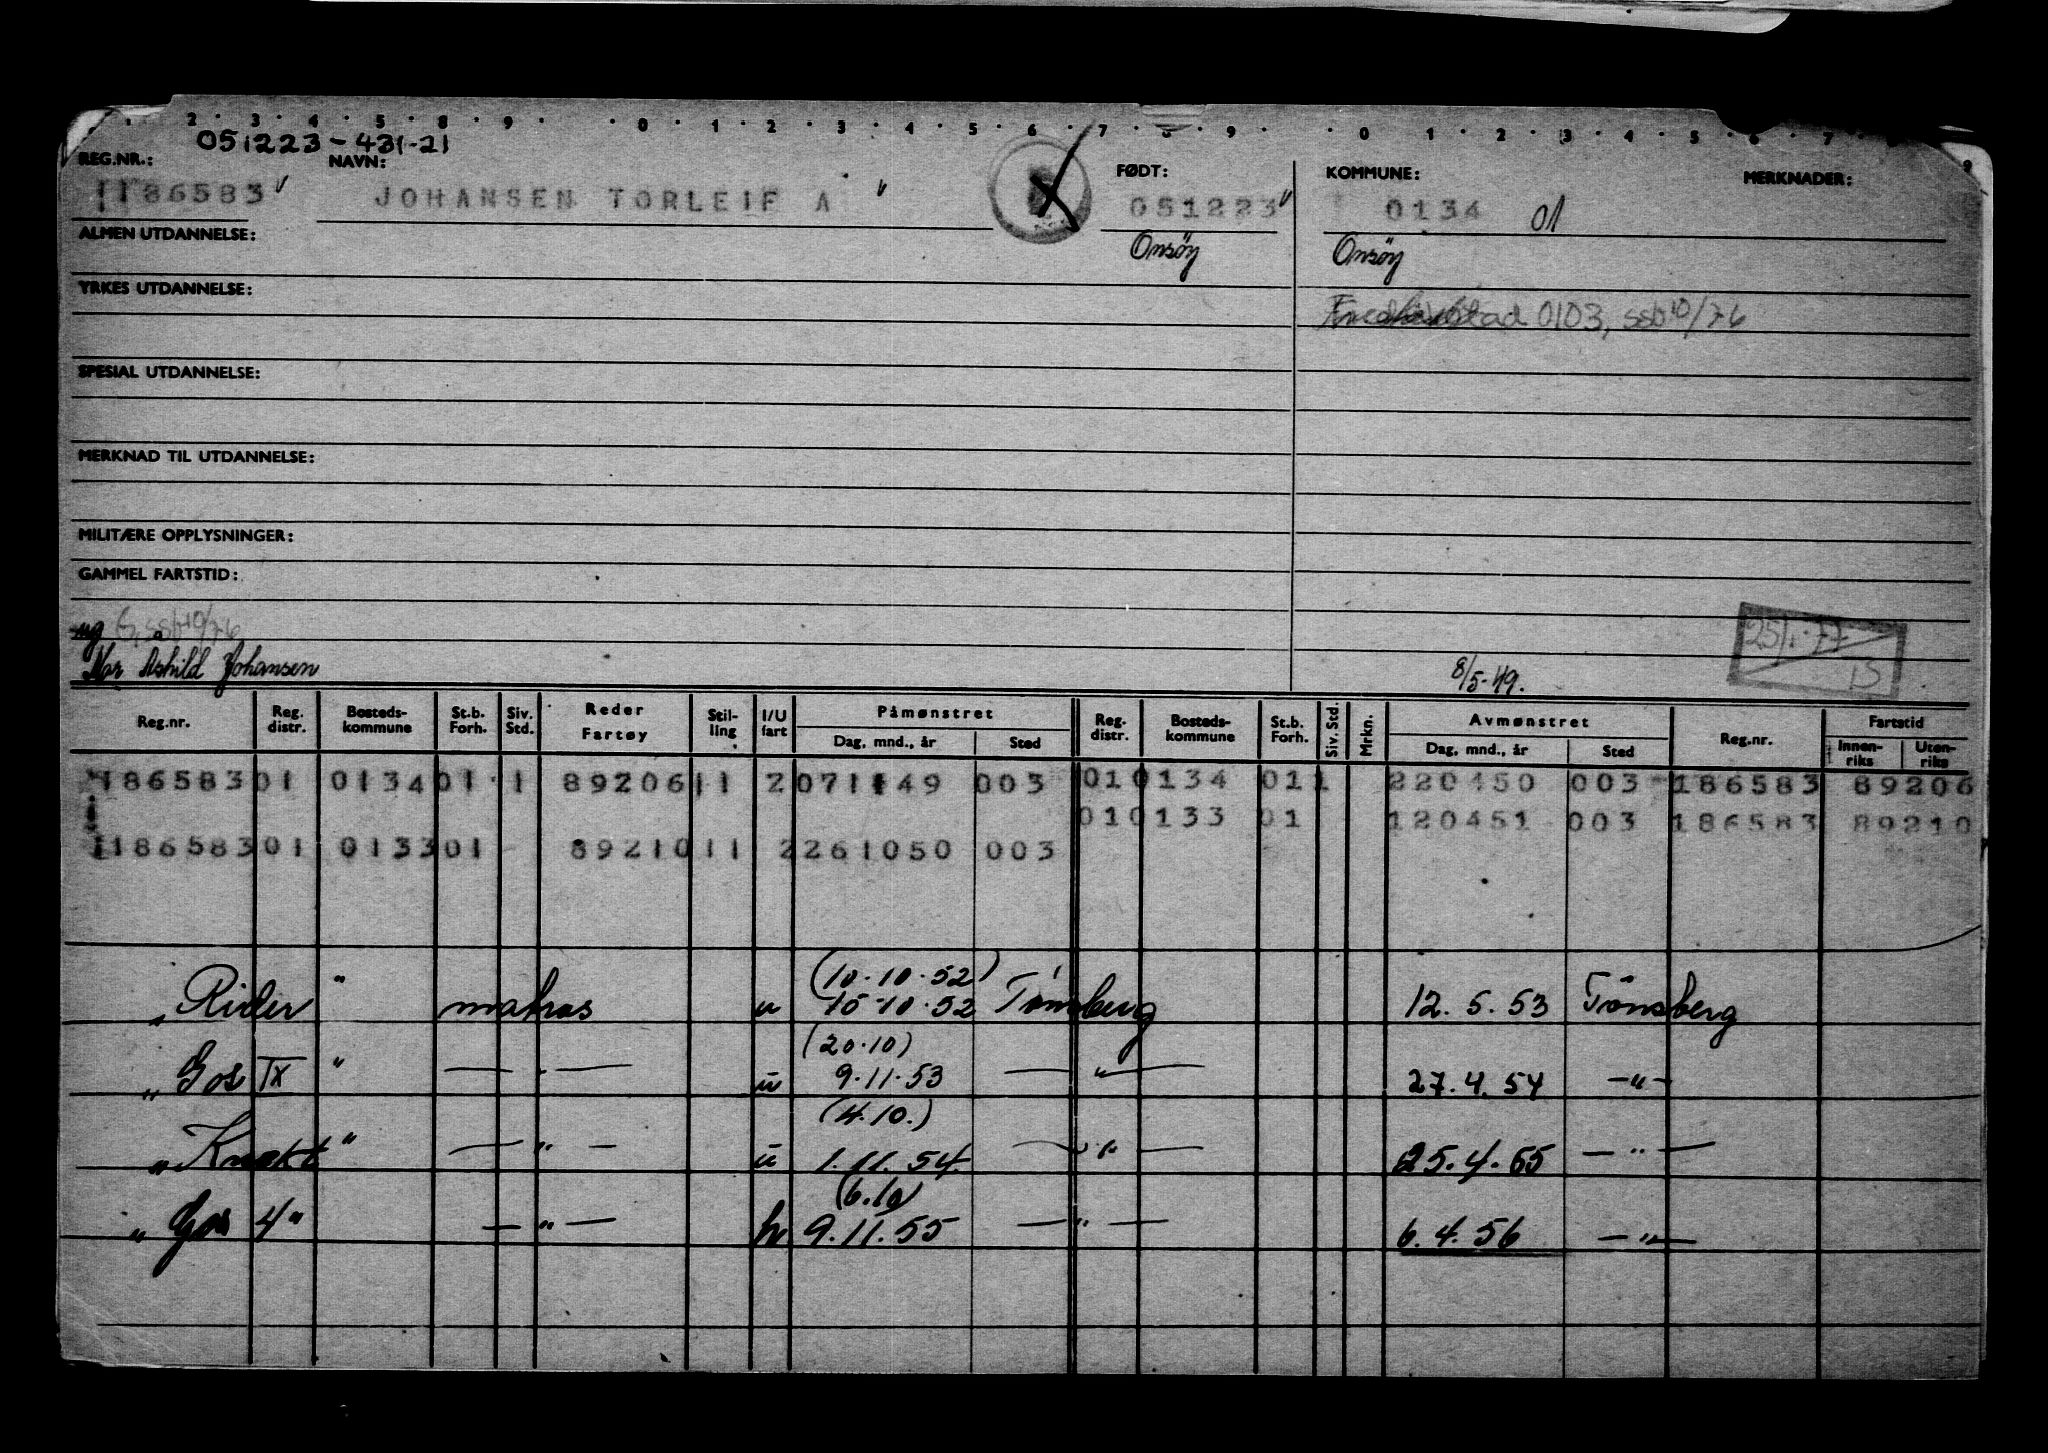 2 · 3 · 4 · 5 · 8 · 9 · · 0 · 1 · 2 · 3 · 4 · 5 · 6 · 7 · 8 · 9 · · 0 · 1 · 2 · 3 · 4 · 5 · 6 · 7
051223-431-21
REG.NR.: NAVN: FØDT: KOMMUNE: MERKNADER:
1186583 JOHANSEN TORLEIF A 051223 0134 01
ALMEN UTDANNELSE: Onsöy Onsöy
YRKES UTDANNELSE:
Fredrikstad 0103, ssb 10/76
SPESIAL UTDANNELSE:
MERKNAD TIL UTDANNELSE:
MILITÆRE OPPLYSNINGER:
GAMMEL FARTSTID:
ug G, ssb 10/76
25/1-77
Mor Åshild Johansen 8/5-49. IS
Reg.nr. Reg. distr. Bosteds-kommune St.b. Forh. Siv. Std. Reder Fartøy Stil-ling I/U fart Påmønstret Dag, mnd., år Sted Reg. distr. Bosteds-kommune St.b. Forh. Siv. Std. Mrkn. Avmønstret Dag, mnd., år Sted Reg.nr. Fartstid Innen-riks Uten-riks
186583 01 0134 01 1 89206 11 2 071149 003 01 0134 01 1 220450 003 186583 89206
01 0133 01 120451 003 186583 89210
1186583 01 0133 01 89210 11 2 261050 003
(10.10.52)
„Rider" matros u 15-10.52 Tønsberg 12.5.53 Tönsberg
(20.10)
„Gos IX" — " — u 9.11.53 — " — 27.4.54 —"—
(4.10.)
„Knakt" — " — u 1.11.54 — " — 25.4.55 — " —
(6.10)
„Gos 4" — " — h 9.11.55 — " — 6.4.56 — " —